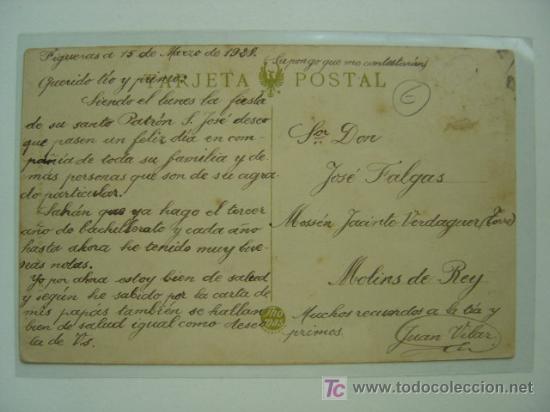 Figueras a 15 de Marzo de 1928.
(Supongo que me contestarán)
Querido tío y primos:
TARJETA POSTAL
6
Siendo el lunes la fiesta
de su santo Patrón S. José deseo
que pasen un feliz día en com-
pañia de toda su familia y de-
más personas que son de su agra-
do particular!
Sabrán que ya hago el tercer
año de bachillerato y cada año
hasta ahora he tenido muy bue-
nas notas.
Yo por ahora estoy bien de salud
y según he sabido por la carta de
mis papás también se hallan
bien de salud igual como deseo
la de Vs.
Sor Don
José Falgas
Mossén Jacinto Verdaguer (Torre)
Molins de Rey
Muchos recuerdos a la tía y
primos.
Juan Vilar
www.todocoleccion.net